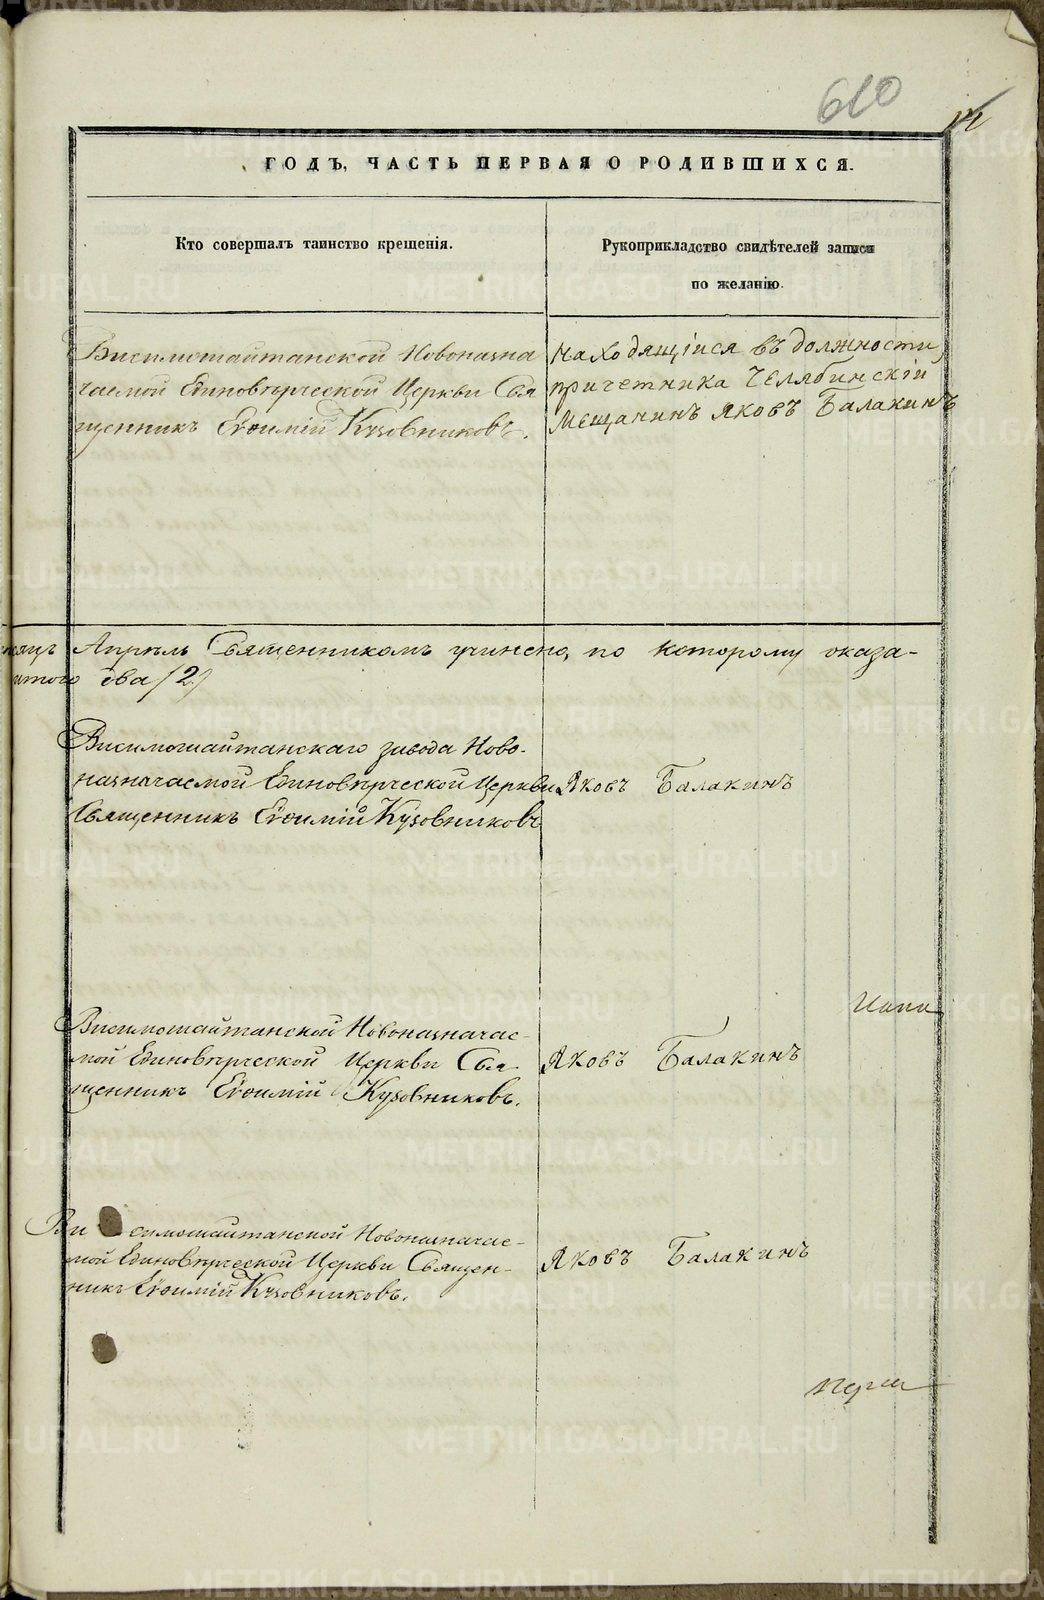 610
ГОДЪ, ЧАСТЬ ПЕРВАЯ О РОДИВШИХСЯ.
Кто совершалъ таинство крещенія.
Рукоприкладство свидѣтелей записи
по желанію.
Висимошайтанской Новоназна
чаемой Единовѣрческой Церкви Свя
щенникъ Евѳимій Кузовниковъ.
Находящіися въ должности
причетника Челябинскій
Мещанинъ Яковъ Балакинъ
Апрѣль Священникомъ учинено, по которому оказа-
итого два /2/
Висимошайтанскаго завода Ново-
назначаемой Единовѣрческой Церкви
Священникъ Евѳимій Кузовниковъ
Яковъ Балакинъ
Висимошайтанской Новоназначае-
мой Единовѣрческой Церкви Свя-
щенникъ Евѳимій Кузовниковъ.
Яковъ Балакинъ
Висимошайтанской Новоназначае-
мой Единовѣрческой Церкви Священ-
никъ Евѳимій Кузовниковъ.
Яковъ Балакинъ
METRIKI.GASO-URAL.RU